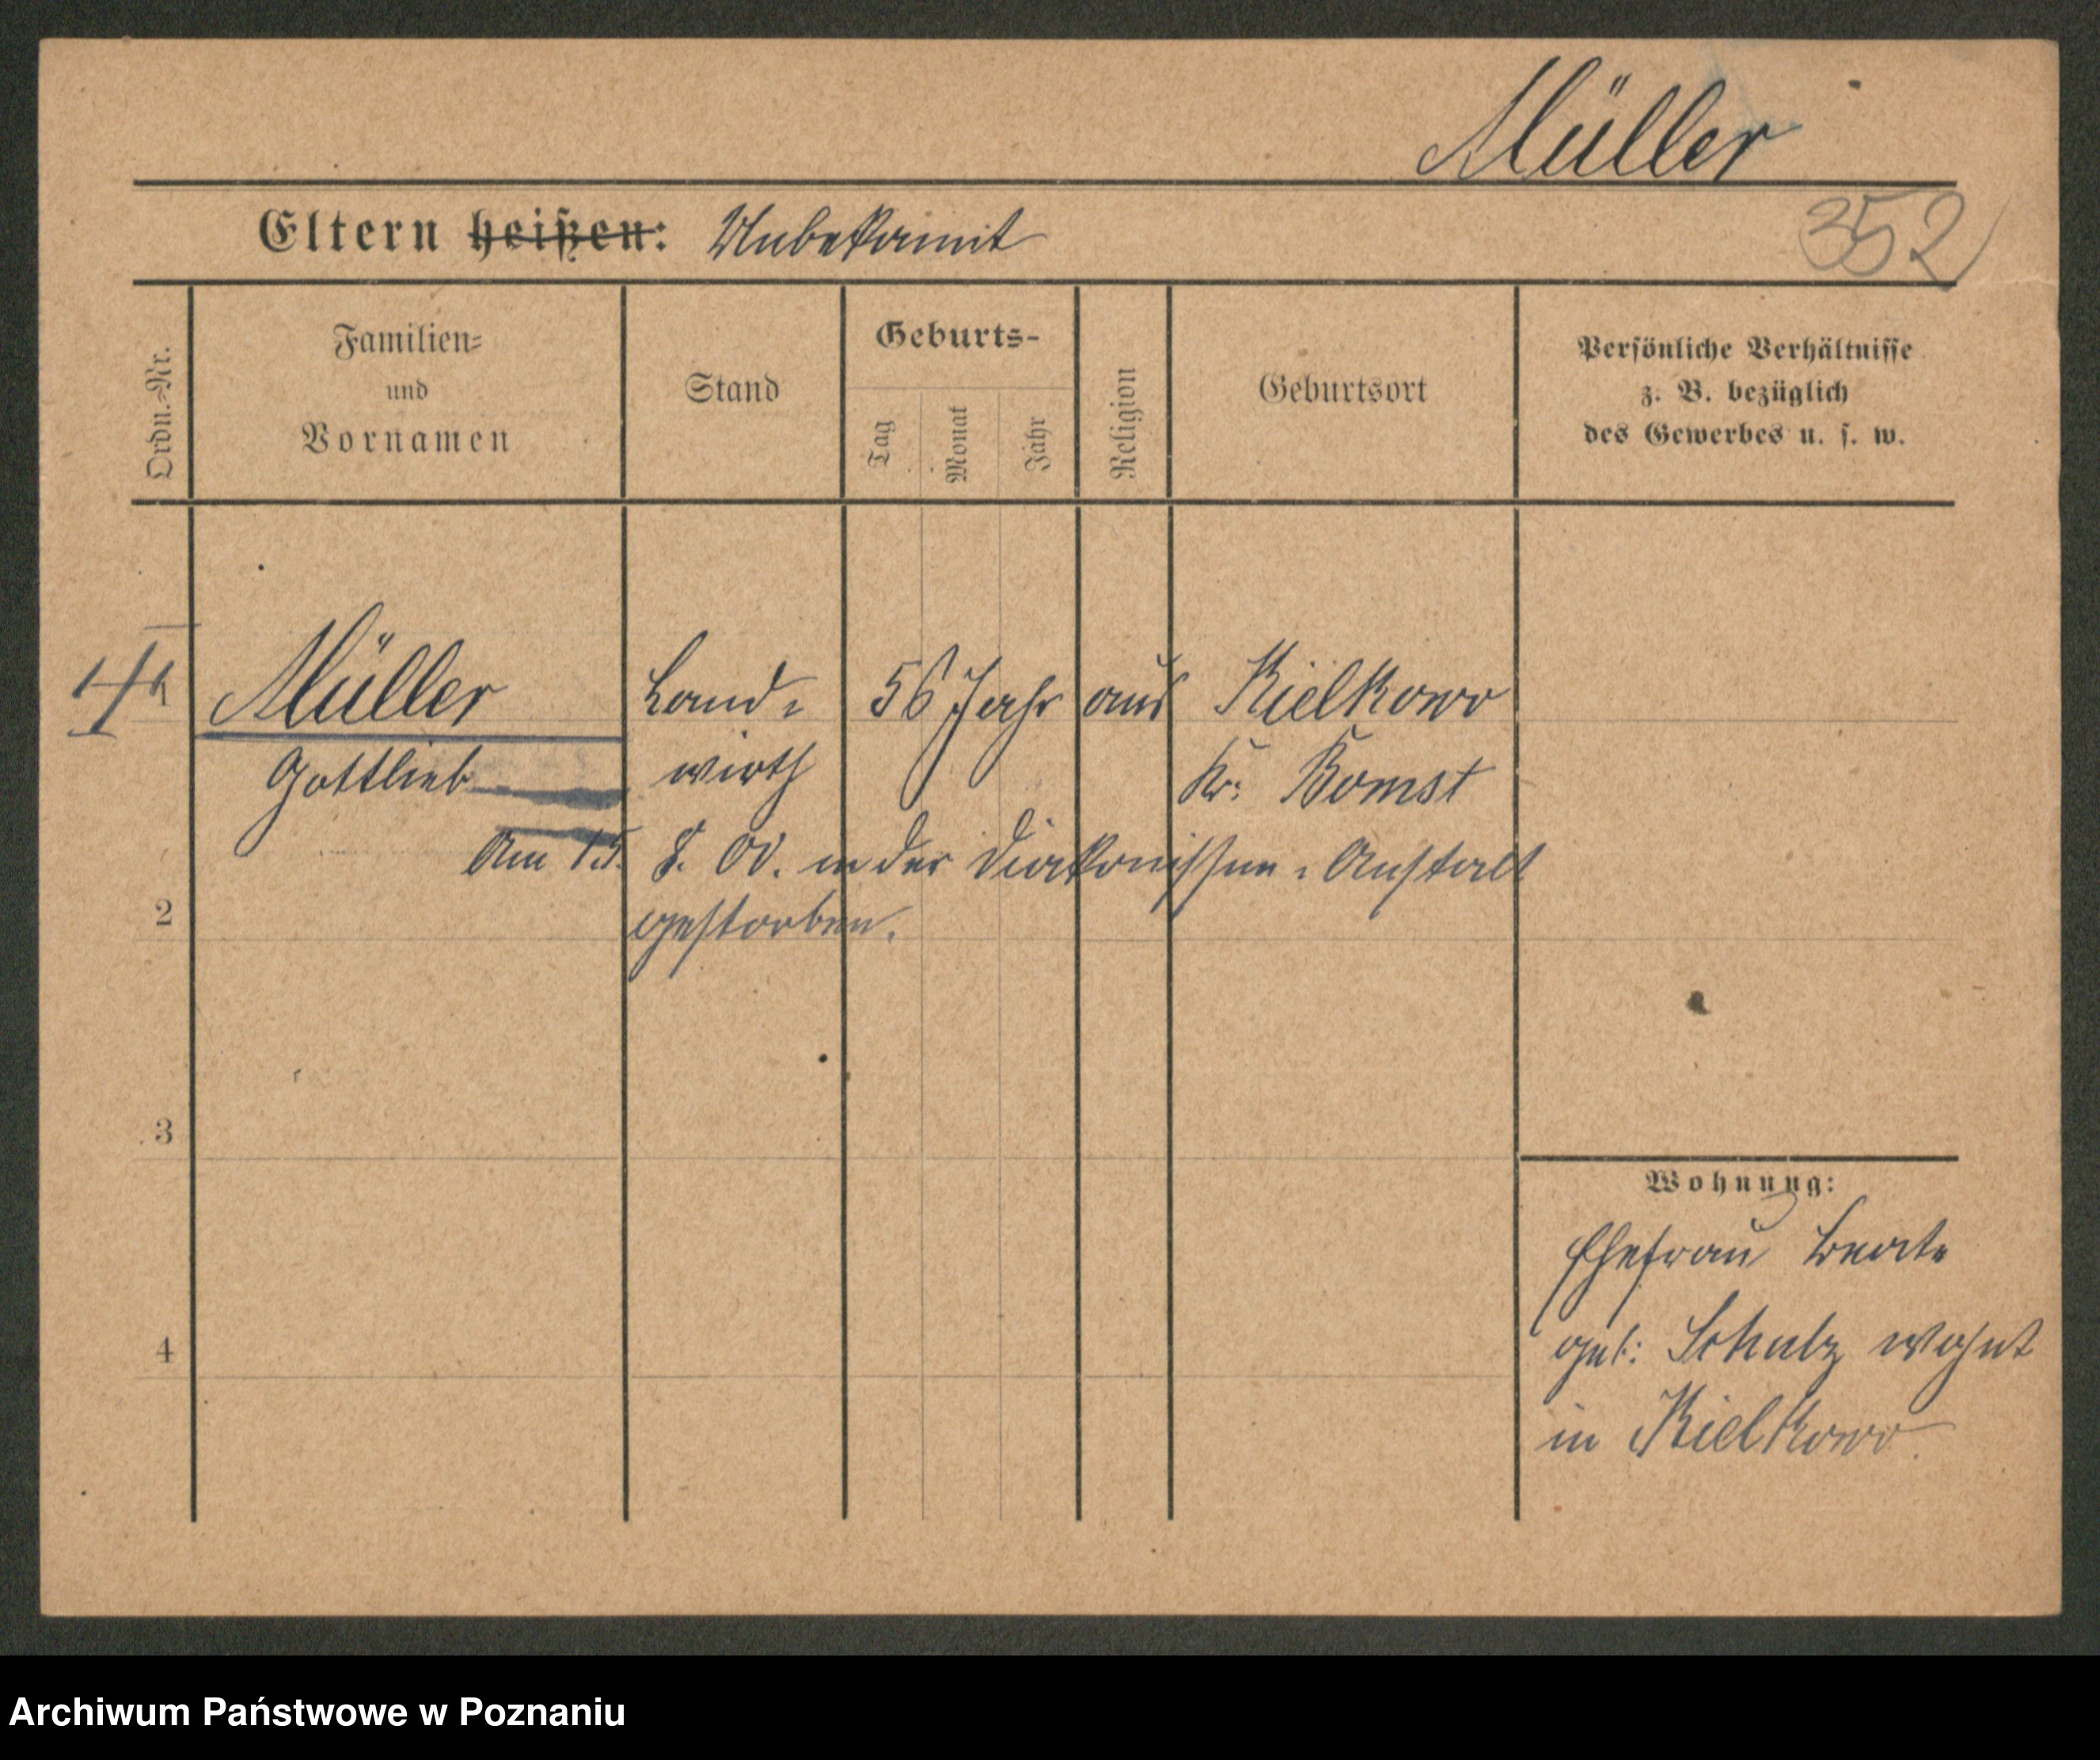 Müller
Eltern heißen: Unbekannt
352
Ordn.-Nr.
Familien-
und
Vornamen
Stand
Geburts-
Tag
Monat
Jahr
Religion
Geburtsort
Persönliche Verhältnisse
z. B. bezüglich
des Gewerbes u. s. w.
1 Müller Land- 56 Jahr aus Kielkowo
Gottlieb wirth Kr: Bomst
Am 15. 8. 00. in der Diakonissen-Anstalt
2 gestorben.
3
4
Wohnung:
Ehefrau Beate
geb: Schulz wohnt
in Kielkowo.
Archiwum Państwowe w Poznaniu